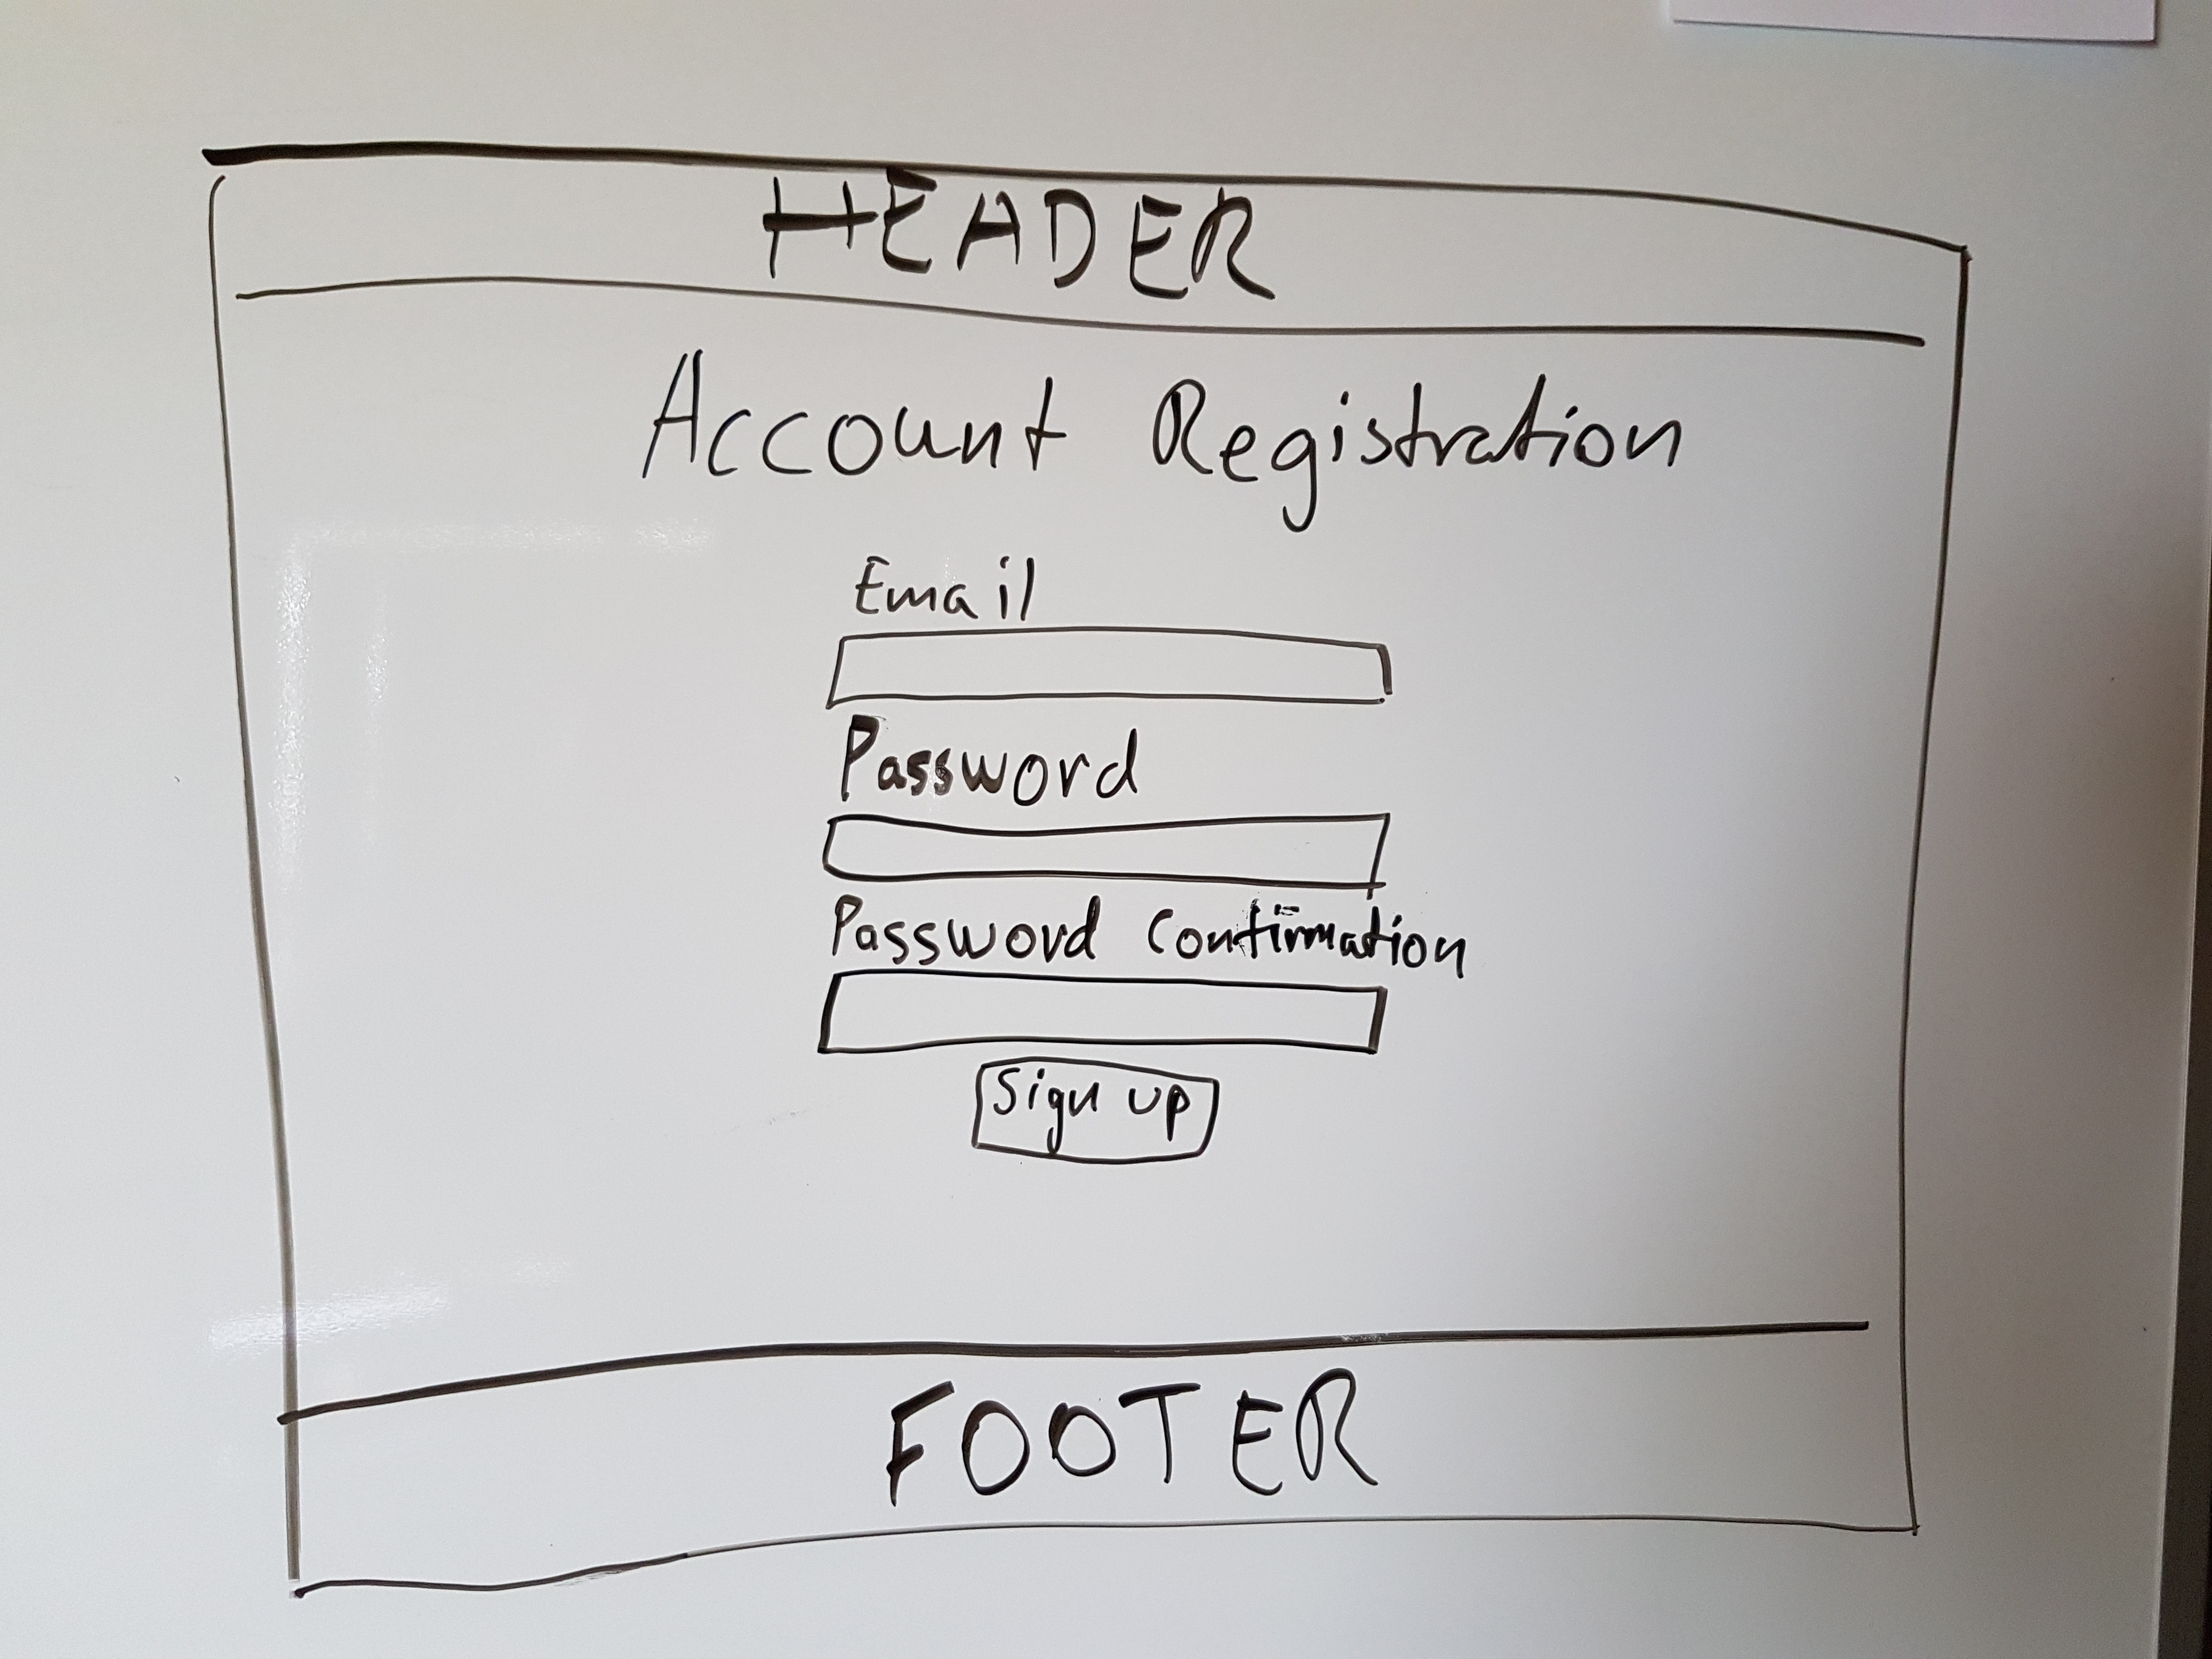 HEADER
Account Registration
Email
Password
Password Confirmation
Sign up
FOOTER